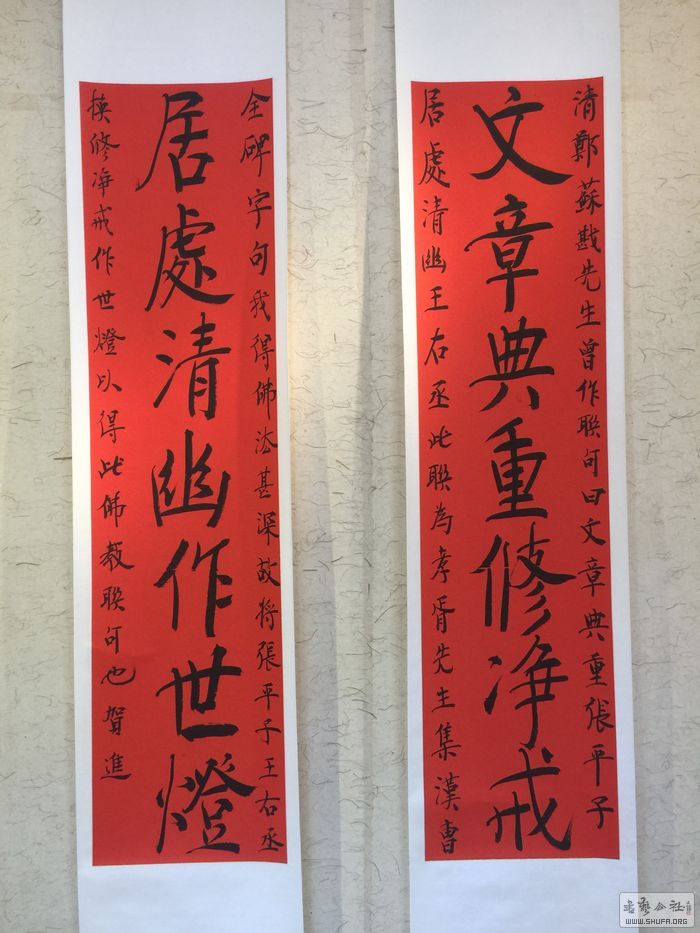 清鄭蘇戡先生曾作聯句曰文章典重張平子
文章典重修净戒
居處清幽王右丞此聯為孝胥先生集漢曹
全碑字句我得佛法甚深故將張平子王右丞
居處清幽作世燈
換修净戒作世燈以得此佛教聯句也賀進
書艺公社
WWW.SHUFA.ORG